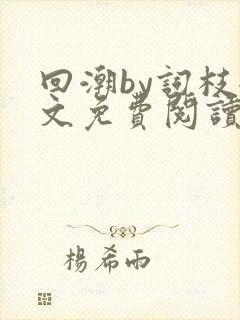 回潮by詞枝
文免費閱讀
楊希雨